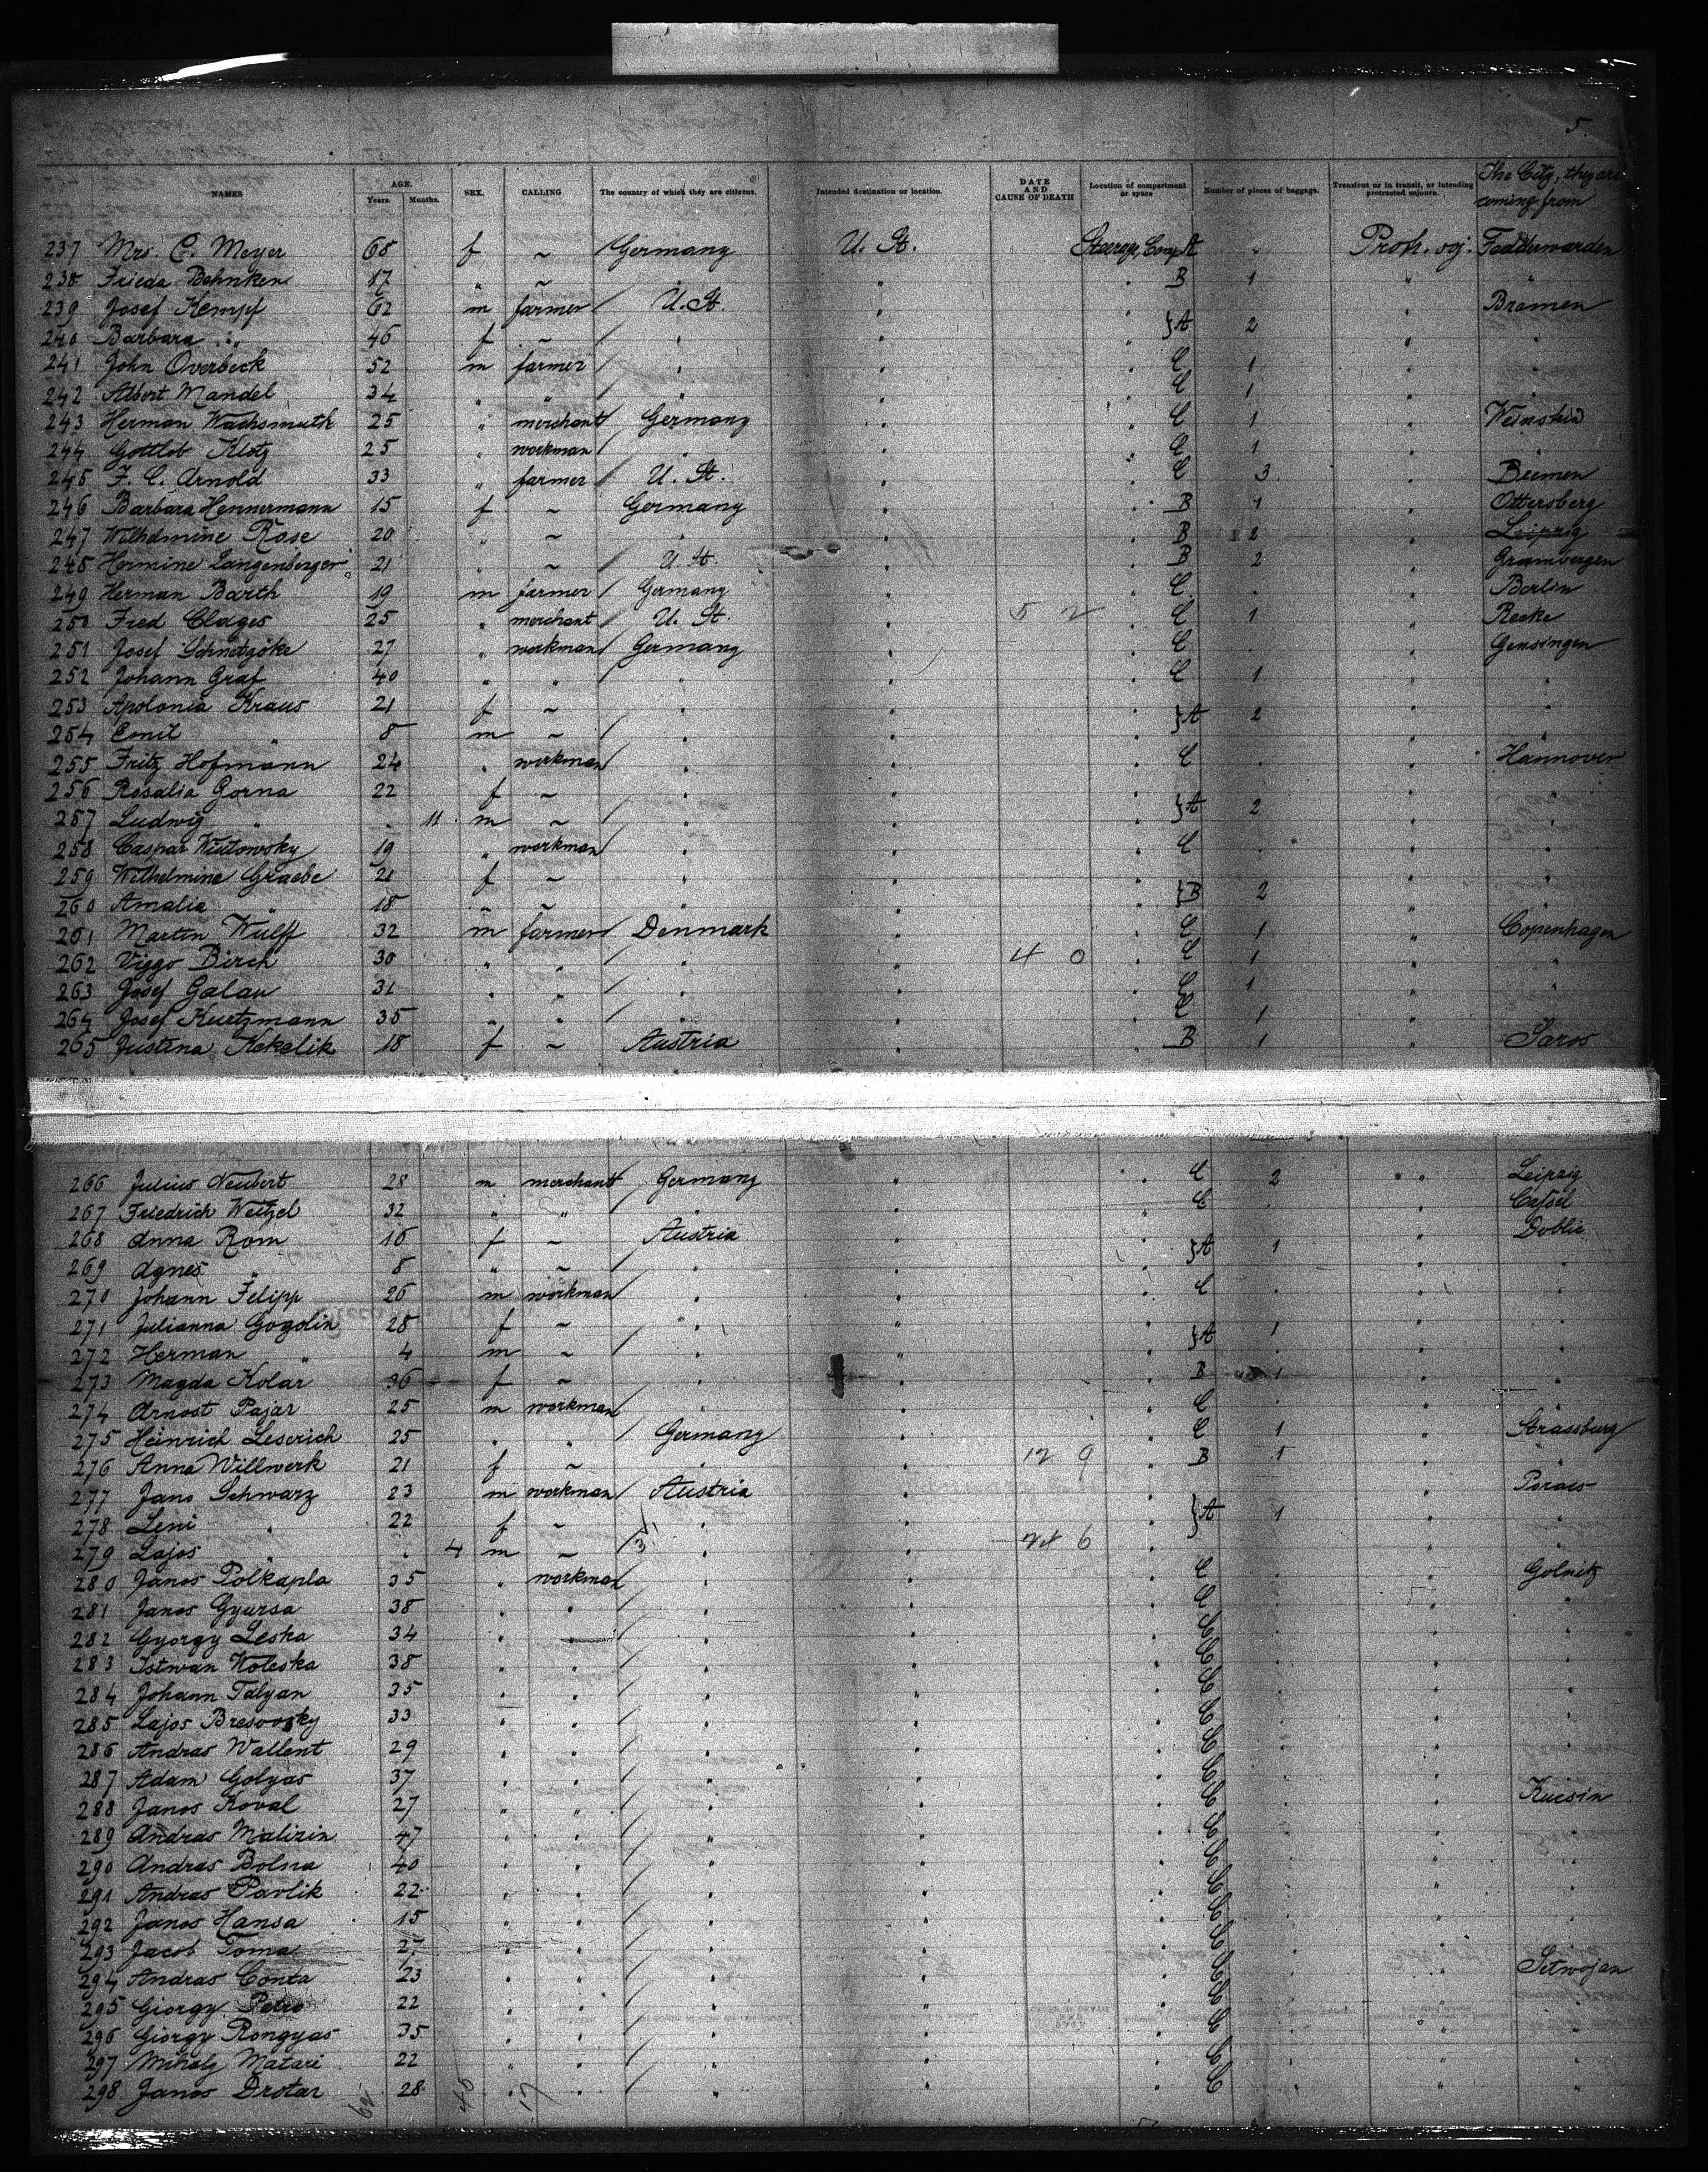 5.
NAMES AGE. Years. Months. SEX. CALLING The country of which they are citizens. Intended destination or location. DATE AND CAUSE OF DEATH Location of compartment or space Number of pieces of baggage. Transient or in transit, or intending protracted sojourn. The City, they are coming from
237 Mrs. C. Meyer 68 f ~ Germany U. St. Steerage, Comp. A " Protr. soj. Fedderwarden
238 Frieda Behnken 17 " ~ " " " B 1 "
239 Josef Kempf 62 m farmer / U. St. " " Bremen
240 Barbara " 46 f ~ / " " " } A 2 " "
241 John Overbeck 52 m farmer / " " " C 1 " "
242 Albert Mandel 34 " " / " " " C 1 " "
243 Herman Wachsmuth 25 " merchant / Germany " " C 1 "
244 Gottlob Klotz 25 " workman / " " " C 1 " "
245 F. C. Arnold 33 " farmer / U. St. " " C 3 " Bremen
246 Barbara Hennermann 15 f ~ Germany " " B 1 " Ottersberg
247 Wilhelmine Rose 20 " ~ " " " B 2 " Leipzig
248 Hermine Langenberger 21 " ~ / U. St. " " B 2 " Grambergen
249 Herman Barth 19 m farmer / Germany " " C " " Berlin
250 Fred Clages 25 " merchant / U. St. " 5 2 " C 1 " Recke
251 Josef Schnetzjöke 27 " workman / Germany " " C " " Gensingen
252 Johann Graf 40 " " / " " " C 1 " "
253 Apolonia Kraus 21 f ~ " " " "
254 Emil " 8 m ~ / " " " } A 2 " "
255 Fritz Hofmann 24 " workman / " " " C " " Hannover
256 Rosalia Gorna 22 f ~ " " " "
257 Ludwig " " 11 m ~ / " " " } A 2 " "
258 Caspar Wiutowsky 19 " workman / " " " C " " "
259 Wilhelmine Graebe 21 f ~ " " " "
260 Amalia " 18 " ~ " " " } B 2 " "
261 Martin Wulff 32 m farmer / Denmark " " C 1 " Copenhagen
262 Viggo Birch 30 " " / " " 4 0 " C 1 " "
263 Josef Galau 31 " " / " " " C 1 " "
264 Josef Kurtzmann 35 " " / " " " C 1 " "
265 Justina Kekelik 18 f ~ Austria " " B 1 " Saros
266 Julius Neubert 28 m merchant / Germany " " C 2 " Leipzig
267 Friedrich Weitzel 32 " " / " " " C " " Cassel
268 Anna Rom 16 f ~ Austria " " Doblic
269 Agnes " 8 " ~ / " " " } A 1 " "
270 Johann Felipp 26 m workman / " " " C " " "
271 Julianna Gogolin 28 f ~ " " " "
272 Herman " 4 m ~ / " " " } A 1 " "
273 Magda Kolar 36 f ~ " " " B 1 " "
274 Arnost Pajar 25 m workman / " " " C " " "
275 Heinrich Leserich 25 " " / Germany " " C 1 " Strassburg
276 Anna Willwerk 21 f ~ " " 12 9 " B 1 " "
277 Jano Schwarz 23 m workman / Austria " "
278 Leni " 22 f ~ " " " } A 1 " "
279 Lajos " " 4 m ~ /3 " " 6 " "
280 Janos Polkapla 35 " workman / " " " C " " Golnitz
281 Janos Gyursa 38 " " / " " " C " " "
282 Gyorgy Leska 34 " " / " " " C " " "
283 Istwan Woleska 38 " " / " " " C " " "
284 Johann Talyan 35 " " / " " " C " " "
285 Lajos Bresovsky 33 " " / " " " C " " "
286 Andras Wallent 29 " " / " " " C " " "
287 Adam Golyas 37 " " / " " " C " " "
288 Janos Koval 27 " " / " " " C " " Kucsin
289 Andras Malizin 47 " " / " " " C " " "
290 Andras Bolna 40 " " / " " " C " " "
291 Andras Pavlik 22 " " / " " " C " " "
292 Janos Hansa 15 " " / " " " C " " "
293 Jacob Toma 27 " " / " " " C " " "
294 Andras Conta 23 " " / " " " C " " Setwojan
295 Giorgy Petro 22 " " / " " " C " " "
296 Giorgy Rongyas 35 " " / " " " C " " "
297 Mihaly Matari 22 " " / " " " C " " "
298 Janos Drotar 28 " " / " " " C " " "
17